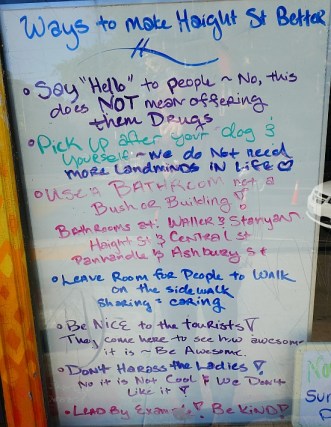 Ways to make Haight St Better
• Say "Hello" to people ~ No, this
does NOT mean offering
them Drugs
• Pick up after your dog &
yourself ~ We do Not need
more Landminds in Life ♡
• Use a BATHROOM not a
Bush or Building!
Bathrooms at: Waller & Stanyan
Haight St & Central St
Panhandle & Ashbury St
• Leave Room for People to Walk
on the sidewalk
sharing = caring
• Be Nice to the tourists!
They come here to see how awesome
it is ~ Be Awesome.
• Don't Harass the Ladies!
No it is Not Cool & We Don't
Like it!
• Lead By Example! Be Kind!